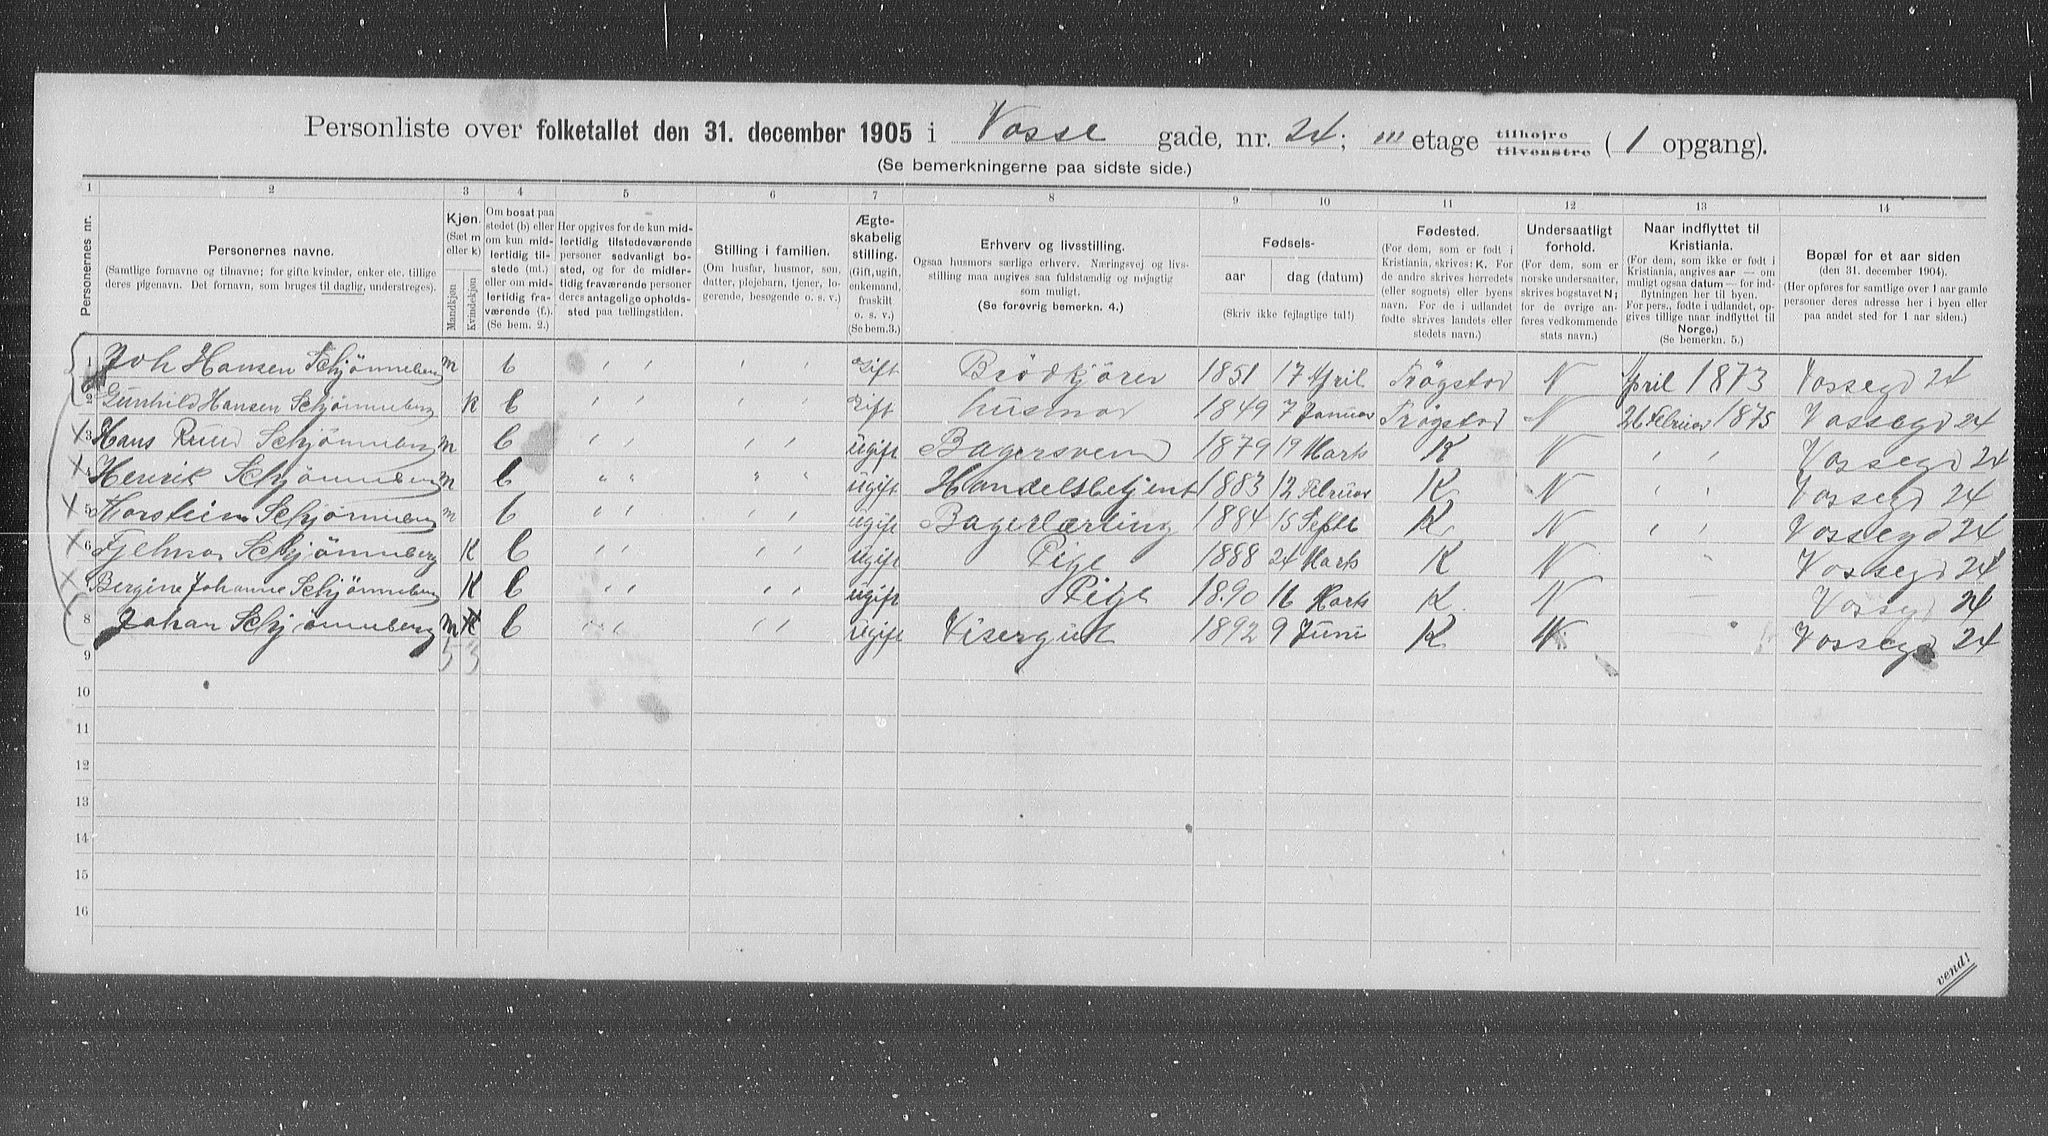 Personliste over folketallet den 31. december 1905 i Vosse gade, nr. 24; III etage tilhøjre tilvenstre (1 opgang).
(Se bemerkningerne paa sidste side.)
1 2 3 4 5 6 7 8 9 10 11 12 13 14
Personernes nr.
Personernes navne.
(Samtlige fornavne og tilnavne; for gifte kvinder, enker etc. tillige deres pigenavn. Det fornavn, som bruges til daglig, understreges).
Kjøn.
(Sæt m eller k)
Mandkjøn
Kvindekjøn
Om bosat paa stedet (b) eller om kun midlertidig tilstede (mt.) eller om midlertidig fraværende (f.). (Se bem. 2.)
Her opgives for de kun midlertidig tilstedeværende personer sedvanligt bosted, og for de midlertidig fraværende personer deres antagelige opholdssted paa tællingstiden.
Stilling i familien.
(Om husfar, husmor, søn, datter, plejebarn, tjener, logerende, besøgende o. s. v.)
Ægteskabelig stilling.
(Gift, ugift, enkemand, fraskilt o. s. v.)
(Se bem.3.)
Erhverv og livsstilling.
Ogsaa husmors særlige erhverv. Næringsvej og livsstilling maa angives saa fuldstændig og nøjagtig som muligt.
(Se forøvrig bemerkn. 4.)
Fødsels-
aar dag (datum)
(Skriv ikke fejlagtige tal!)
Fødested.
(For dem, som er født i Kristiania, skrives: K. For de andre skrives herredets (eller sognets) eller byens navn. For de i udlandet fødte skrives landets eller stedets navn.)
Undersaatligt forhold.
(For dem, som er norske undersaatter, skrives bogstavet N; for de øvrige anføres vedkommende stats navn.)
Naar indflyttet til Kristiania.
(For dem, som ikke er født i Kristiania, angives aar — om muligt ogsaa datum — for indflytningen her til byen. For pers., fødte i udlandet, opgives tillige naar indflyttet til Norge.)
(Se bemerkn. 5.)
Bopæl for et aar siden
(den 31. december 1904).
(Her opføres for samtlige over 1 aar gamle personer deres adresse her i byen eller paa andet sted for 1 aar siden.)
1 Joh Hansen Schjønneberg m b " " Gift Brödkjörer 1851 17 April Trøgstad N April 1873 Vossegd 24
2 Gunhild Hansen Schjønneberg K b " " Gift husmor 1849 7 Januar Trøgstad N 26 Februar 1875 Vossegd 24
3 Hans Ruud Schjønneberg m b " " ugift Bagersvend 1879 19 Marts K N " " Vossegd 24
4 Henrik Schjønneberg m b " " ugift Handelsbetjent 1883 12 Februar K N " " Vossegd 24
5 Thorstein Schjønneberg m b " " ugift Bagerlærling 1884 15 Septb K N " " Vossegd 24
6 Schjønneberg K b " " ugift Pige 1888 24 Marts K N " Vossegd 24
7 Bergine Johanne Schjønneberg K b " " ugift Pige 1890 16 Marts K N — Vossegd 24
8 Johan Schjønneberg m b " " ugift Visergut 1892 9 Juni K N Vossegd 24
9 5 3
10
11
12
13
14
15
16
vend!